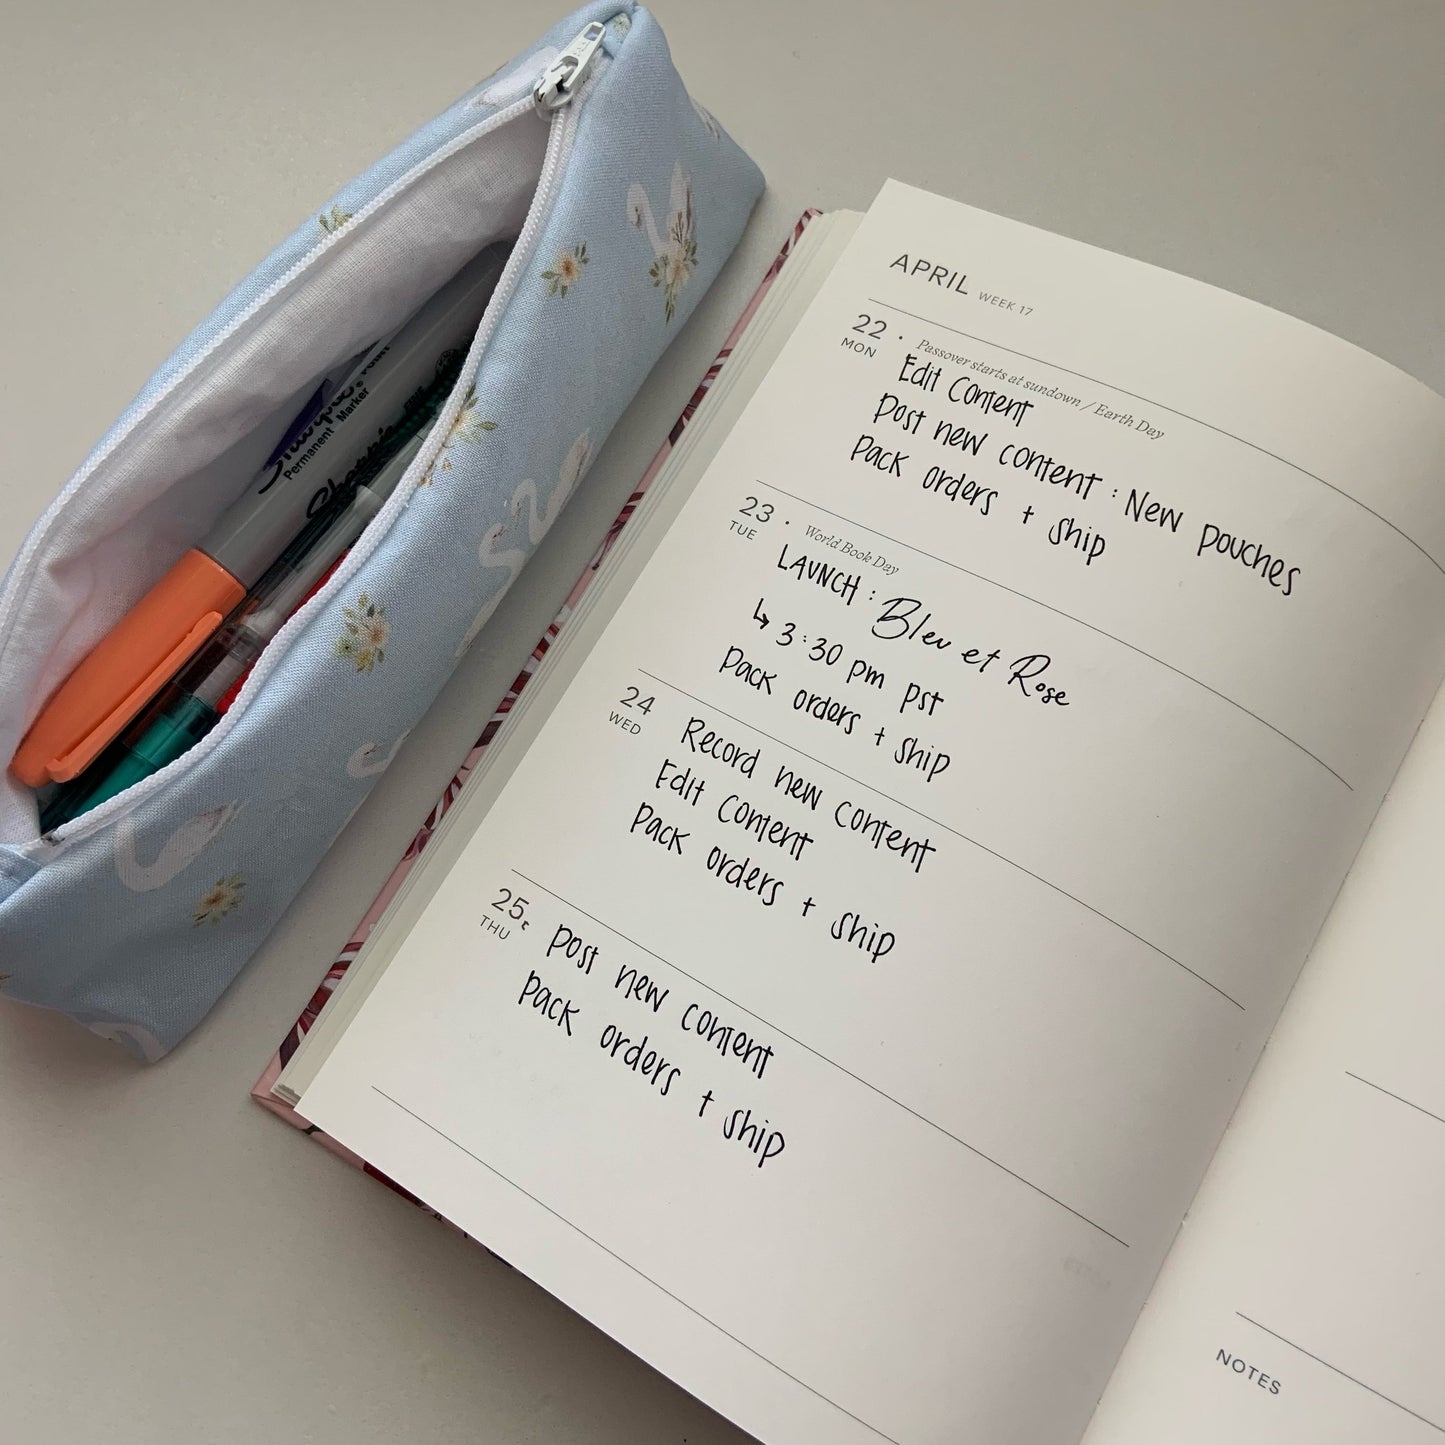 Sharpie
Permanent Marker
Sharpie
APRIL WEEK 17
22 • Passover starts at sundown / Earth Day
MON
Edit Content
Post new content : New pouches
pack orders + ship
23 • World Book Day
TUE
LAUNCH : Bleu et Rose
↳ 3:30 pm pst
pack orders + ship
24
WED
Record new content
Edit Content
pack orders + ship
25
THU
post new content
pack orders + ship
NOTES